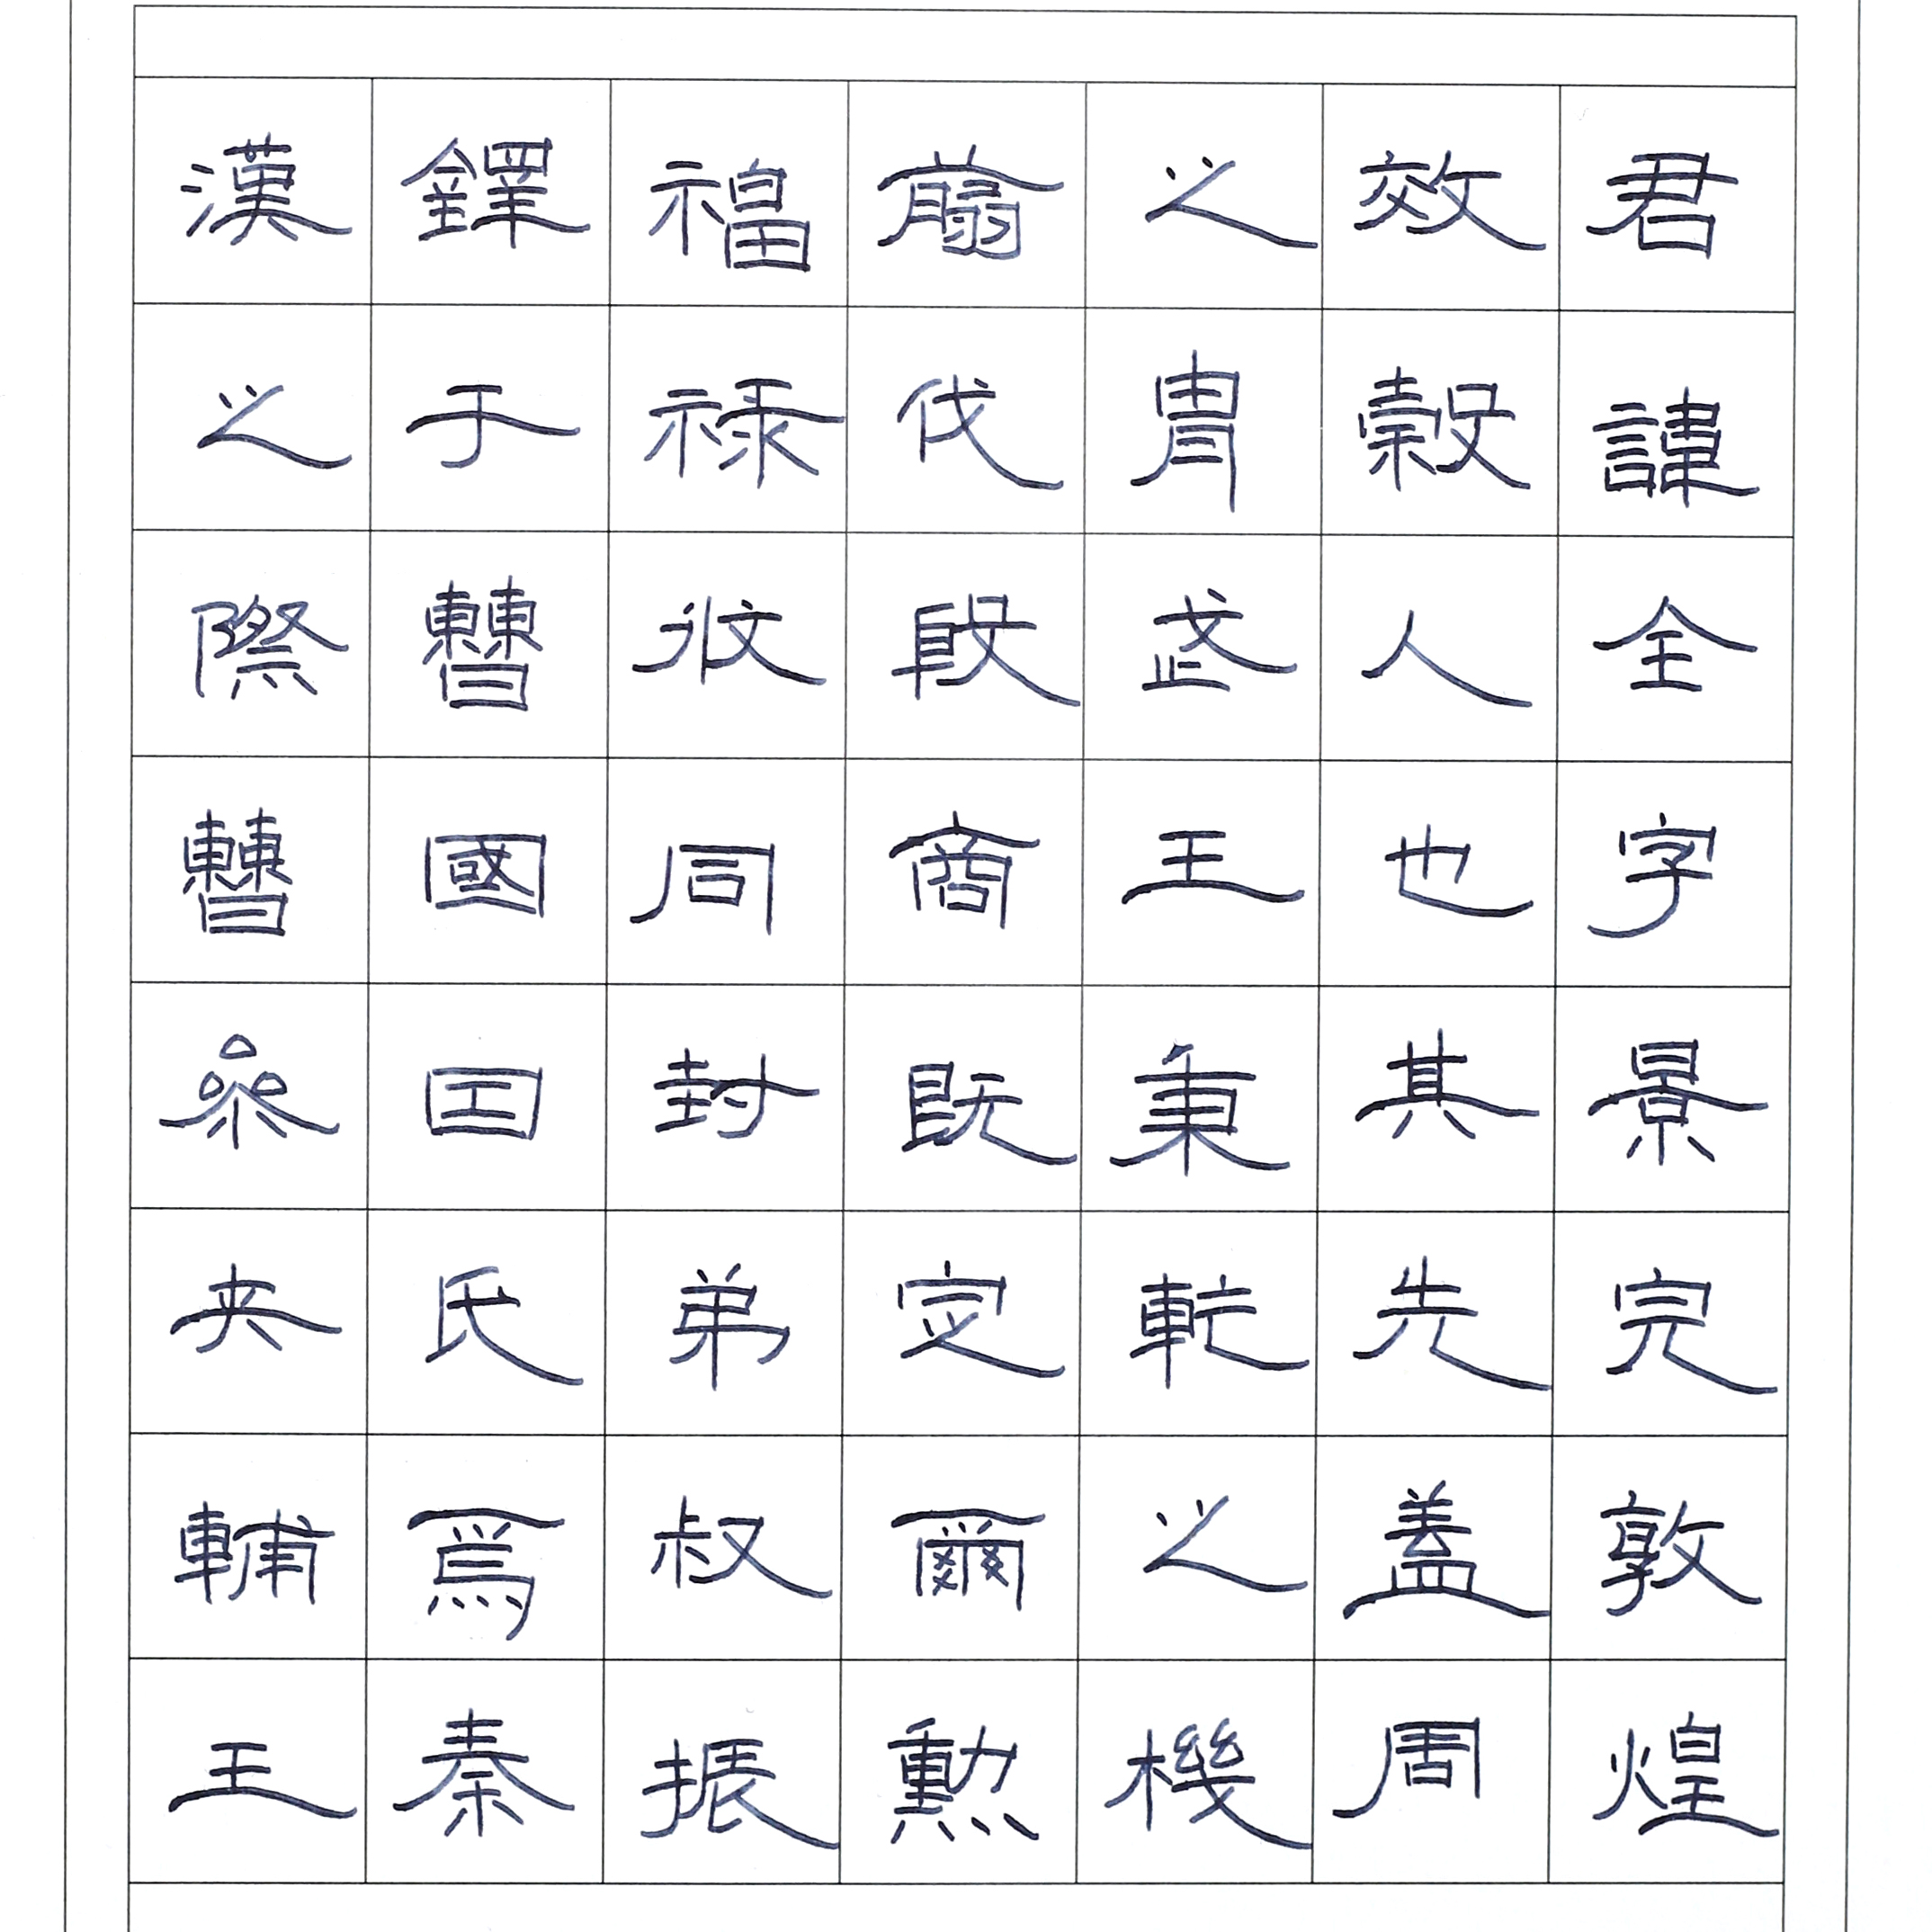 君諱全字景完敦煌
效穀人也其先蓋周
之胄武王秉乾之機
翦伐殷商既定爾勲
福祿攸同封弟叔振
鐸于曹國囯氏焉秦
漢之際曹參夾輔王